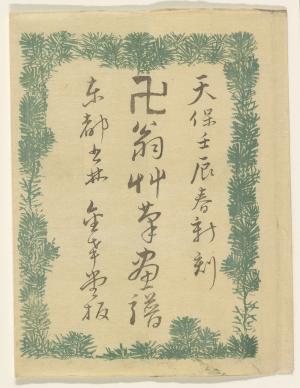 天保壬辰春新刻
卍翁艸筆画譜
東都書林 金幸堂板